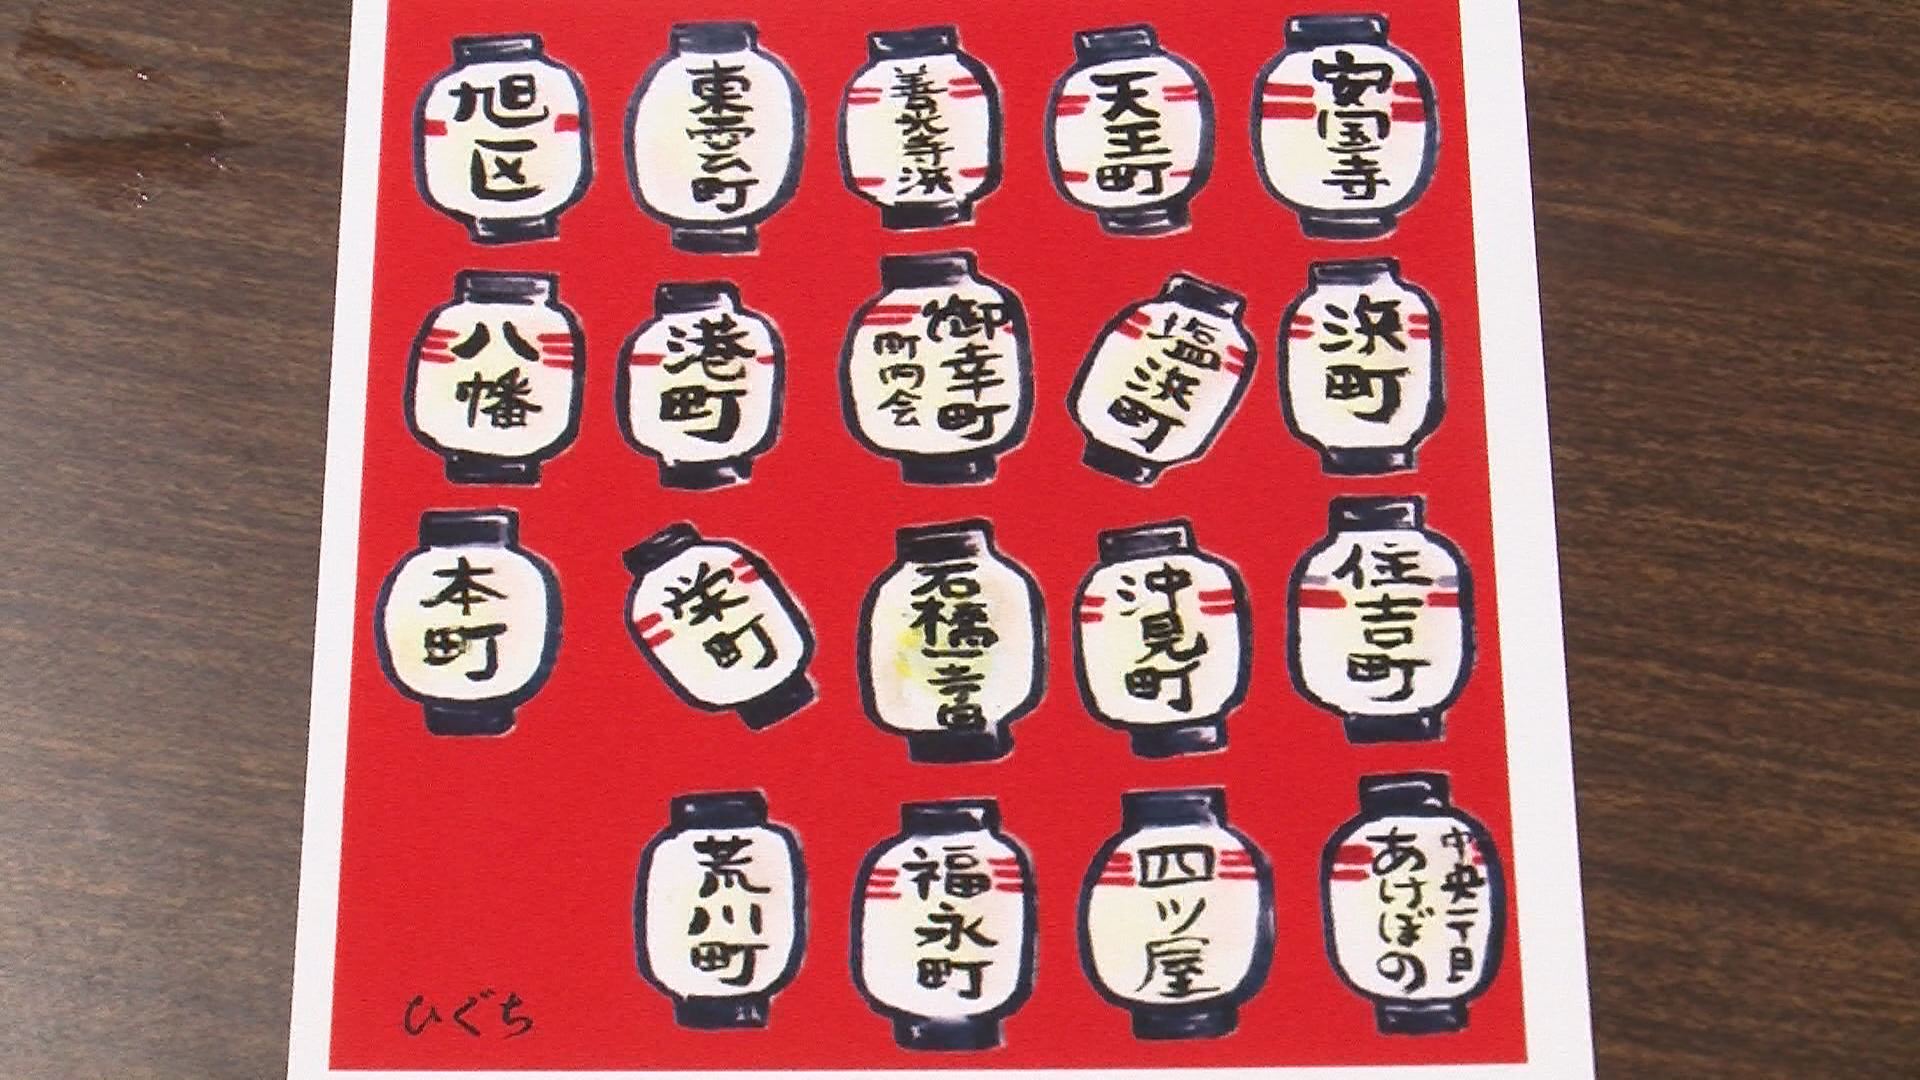 旭区
東雲町
善光寺浜
天王町
安国寺
八幡
港町
御幸町
町内会
塩浜町
浜町
本町
栄町
石橋一宮
沖見町
住吉町
荒川町
福永町
四ツ屋
中央一丁目
あけぼの
ひぐち